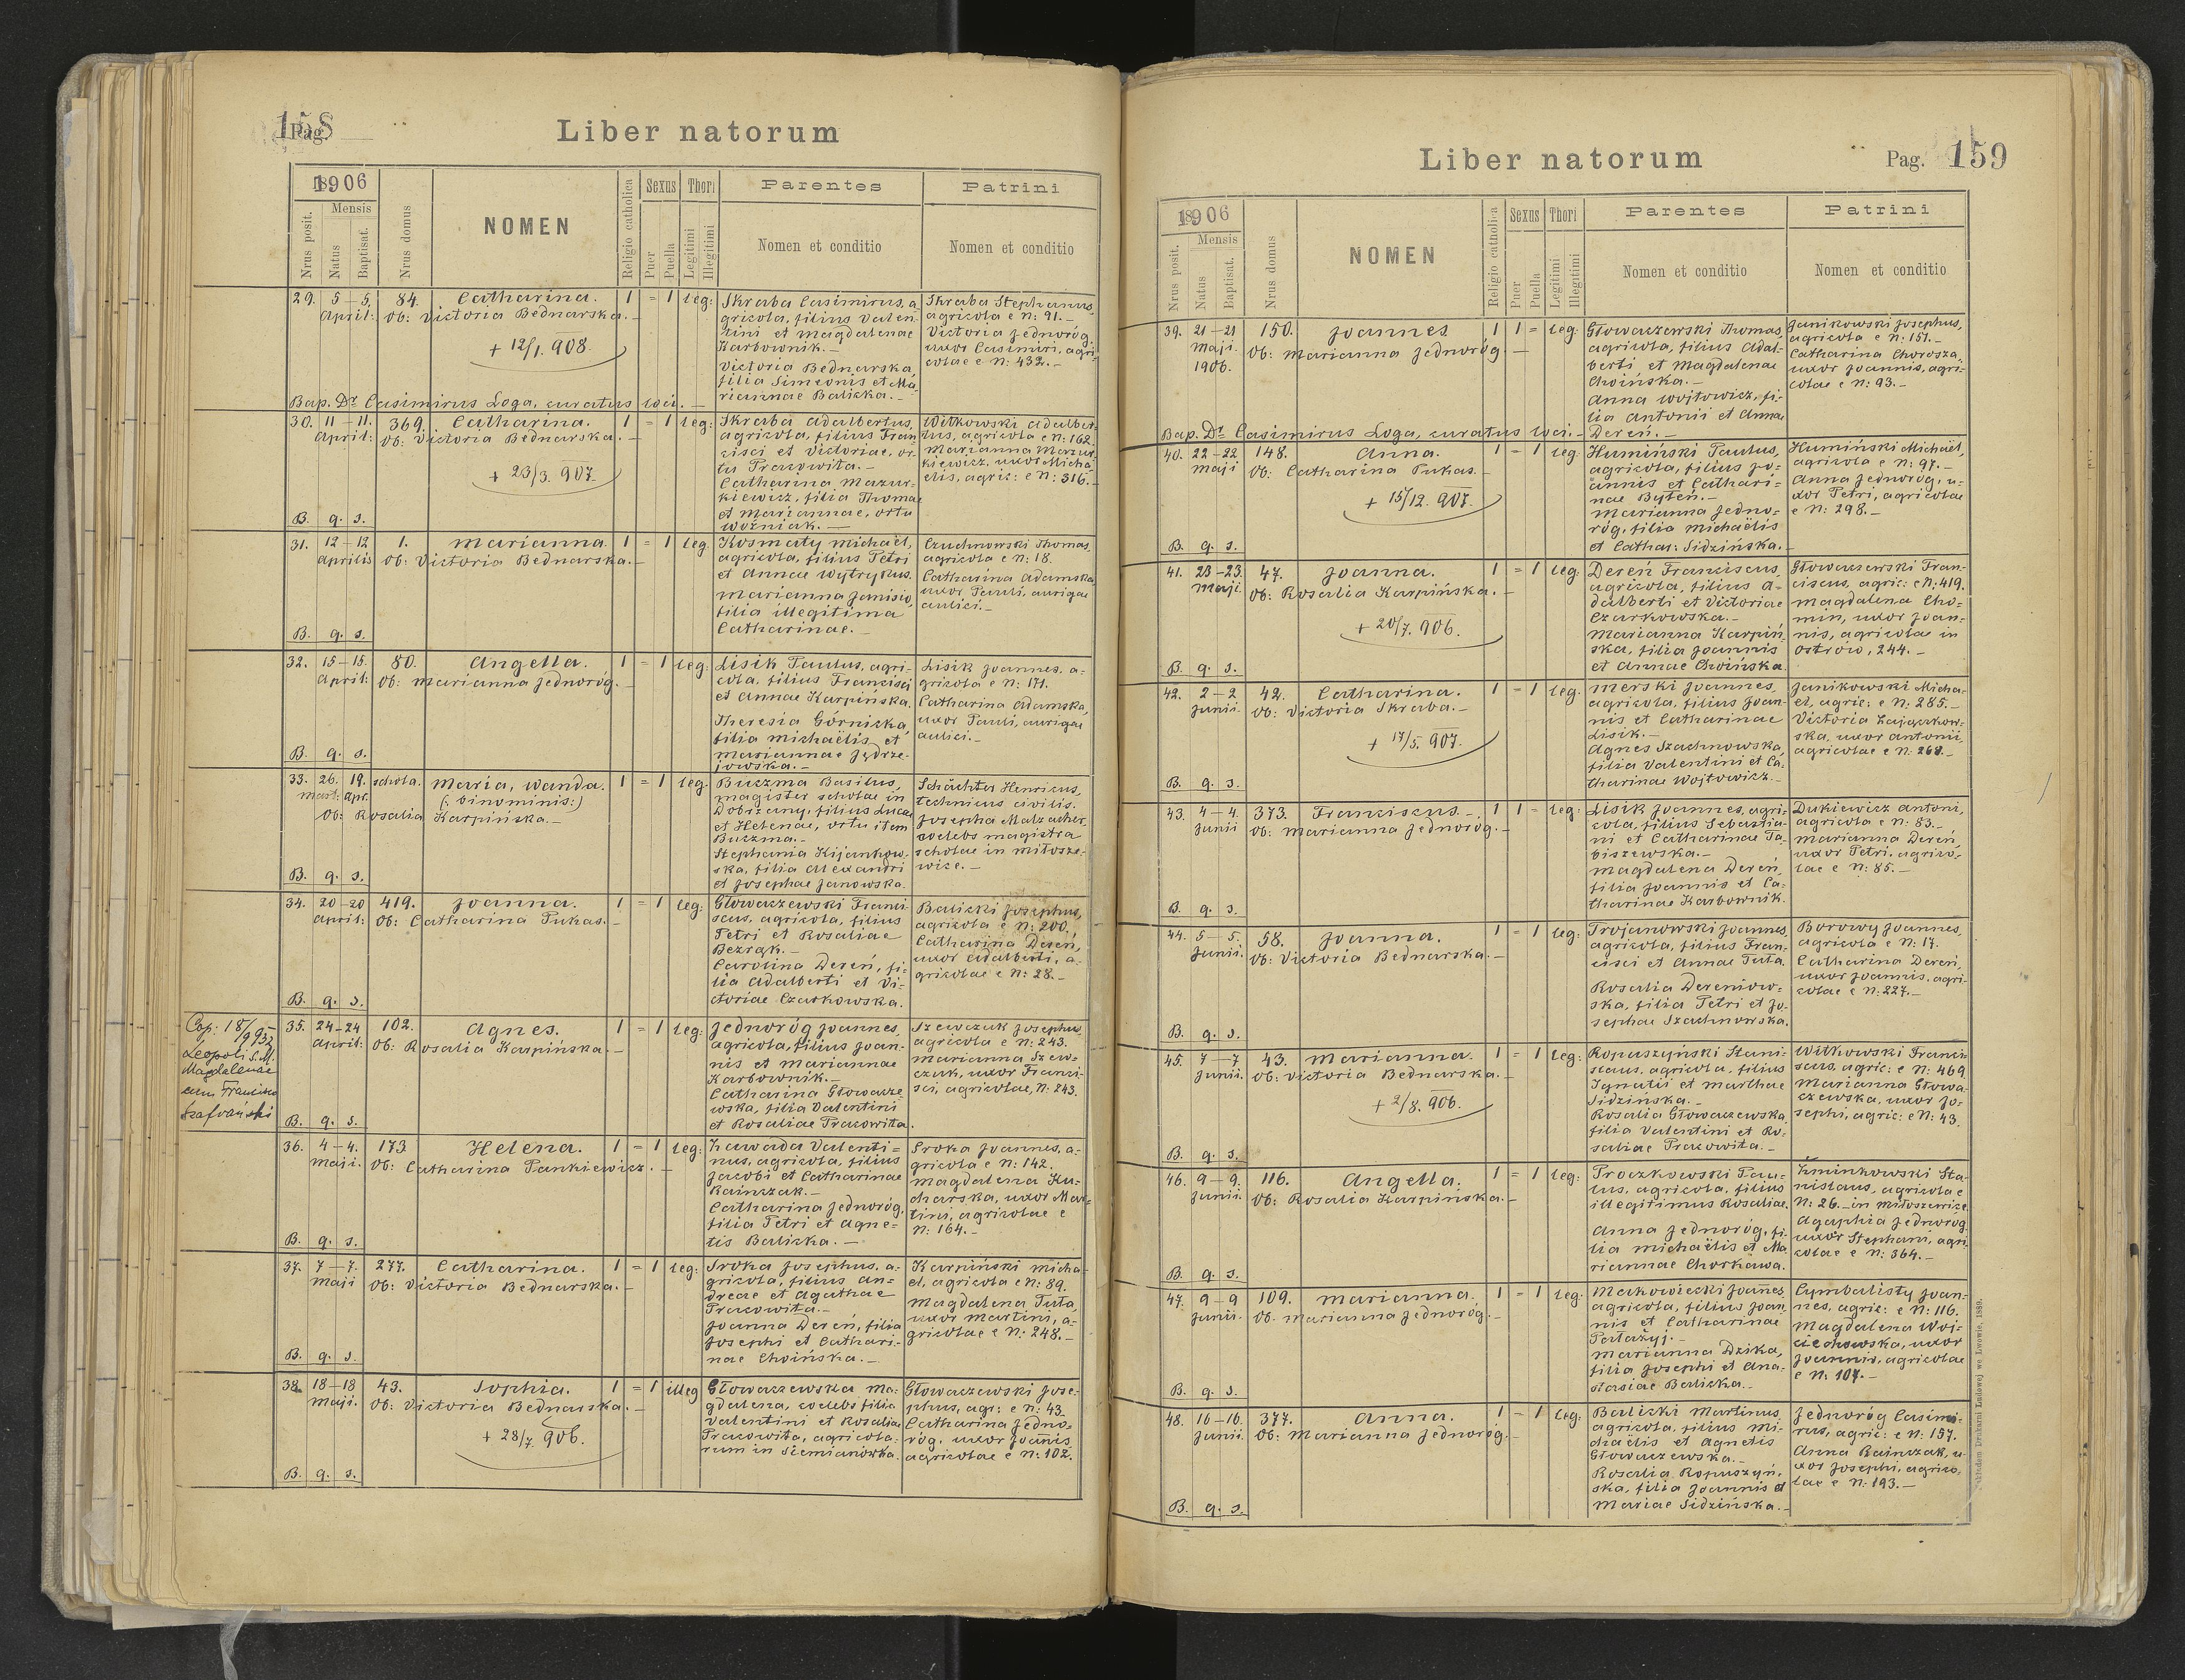 Pag. 158
Liber natorum
1906
Nrus posit.
Mensis
Natus
Baptisat.
Nrus domus
NOMEN
Religio catholica
Sexus
Puer
Puella
Thori
Legitimi
Illegitimi
Parentes
Nomen et conditio
Patrini
Nomen et conditio
29. 5 – 5. 84. Catharina. 1 = 1 leg:
April: Ob: Victoria Bednarska. –
+ 12/1. 908.
Skraba Casimirus, a
gricola, filius Valen-
tini et Magdalenae
Karbownik. –
Victoria Bednarska,
filia Simeonis et Ma-
riannae Balicka. –
Skraba Stephanus,
agricola e N: 91. –
Victoria Jednoróg,
uxor Casimiri, agri-
colae e N: 432. –
Bap. Dr Casimirus Loga, curatus loci. –
30. 11 – 11. 369. Catharina. 1 = 1 leg:
April: Ob: Victoria Bednarska. –
+ 23/3. 907.
B. q. s.
Skraba Adalbertus,
agricola, filius Fran-
cisci et Victoriae, or-
tu Pracowita. –
Catharina Mazur-
kiewicz, filia Thomae
et Mariannae, ortu
Woźniak. –
Witkowski Adalber-
tus, agricola e N: 162.
Marianna Mazur-
kiewicz, uxor Micha-
elis, agric: e N: 316. –
31. 12 – 12 1. Marianna. 1 = 1 leg.
Aprilis Ob: Victoria Bednarska. –
B. q. s.
Kosmaty Michaël,
agricola, filius Petri
et Annae Wytrykus.
Marianna Janisio,
filia illegitima
Catharinae. –
Czuchnowski Thomas,
agricola e N: 18.
Catharina Adamska,
uxor Pauli, aurigae
aulici. –
32. 15 – 15. 80. Angella. 1 = 1 leg:
April: Ob: Marianna Jednoróg. –
B. q. s.
Lisik Paulus, agri-
cola, filius Francisci
et Annae Karpińska.
Theresia Górnicka,
filia Michaëlis et
Mariannae Jędrze-
jowska. –
Lisik Joannes, a-
gricola e N: 171.
Catharina Adamska,
uxor Pauli, aurigae
aulici. –
33. 26. 19. schola. Maria, Wanda. 1 = 1 leg.
Mart: Apr. (: binominis:)
Ob: Rosalia Karpińska. –
B. q. s.
Buczma Basilius,
magister scholae in
Dobrzany, filius Lucae
et Helenae, ortu item
Buczma. –
Stephania Kijankow-
ska, filia Alexandri
et Josephae Janowska.
Schächter Henricus,
technicus civilis.
Josepha Malzacher,
coelebs magistra
scholae in Miłosze-
wice. –
34. 20 – 20 419. Joanna. 1 = 1 leg:
April: Ob: Catharina Pukas. –
B. q. s.
Głowaczewski Franci-
scus, agricola, filius
Petri et Rosaliae
Bezrąk. –
Carolina Dereń, fi-
lia Adalberti et Vi-
ctoriae Czarkowska.
Balicki Josephus,
agricola e N: 200.
Catharina Dereń,
uxor Adalberti, a-
gricolae e N: 28. –
Cop: 18/
Leopoli S. M.
Magdalenae
cum Francisco
35. 24 – 24 102. Agnes. 1 = 1 leg:
April: Ob: Rosalia Karpińska. –
B. q. s.
Jednoróg Joannes,
agricola, filius Joan-
nis et Mariannae
Karbownik. –
Catharina Głowacze-
wska, filia Valentini
et Rosaliae Pracowita.
Szewczuk Josephus,
agricola e N: 243.
Marianna Szew-
czuk, uxor Franci-
sci, agricolae, N: 243.
36. 4 – 4. 173 Helena. 1 = 1 leg:
Maji. Ob: Catharina Pankiewicz. –
B. q. s.
Zawada Valenti-
nus, agricola, filius
Jacobi et Catharinae
Rainczak. –
Catharina Jednoróg,
filia Petri et Agne-
tis Balicka. –
Sroka Joannes, a-
gricola e N: 142.
Magdalena Ku-
charska, uxor Mar-
tini, agricolae e
N: 164. –
37. 7 – 7. 277. Catharina. 1 = 1 leg:
Maji Ob: Victoria Bednarska. –
B. q. s.
Sroka Josephus, a-
gricola, filius An-
dreae et Agathae
Pracowita. –
Joanna Dereń, filia
Josephi et Cathari-
nae Choińska. –
Karpiński Micha-
el, agricola e N: 89.
Magdalena Tuta,
uxor Martini, a-
gricolae e N: 248. –
38. 18 – 18 43. Sophia. 1 = 1 illeg
Maji. Ob: Victoria Bednarska. –
+ 28/7. 906.
B. q. s.
Głowaczewska Ma-
gdalena, coelebs filia
Valentini et Rosaliae
Pracowita, agricola-
rum in Siemianówka.
Głowaczewski Jose-
phus, agr: e N: 43.
Catharina Jedno-
róg, uxor Joannis
agricolae e N: 102.
Liber natorum
Pag. 159
1906
Nrus posit.
Mensis
Natus
Baptisat.
Nrus domus
NOMEN
Religio catholica
Sexus
Puer
Puella
Thori
Legitimi
Illegitimi
Parentes
Nomen et conditio
Patrini
Nomen et conditio
39. 21 – 21 150. Joannes 1 1 = leg:
Maji. Ob: Marianna Jednoróg. –
1906.
Głowaczewski Thomas,
agricola, filius Adal-
berti et Magdalenae
Choińska. –
Anna Wojtowicz, fi-
lia Antonii et Annae
Dereń. –
Janikowski Josephus,
agricola e N: 151. –
Catharina Chorosza,
uxor Joannis, agri-
colae e N: 93. –
Bap. Dr Casimirus Loga, curatus loci. –
40. 22 – 22 148. Anna. 1 = 1 leg.
Maji Ob: Catharina Pukas. –
+ 15/12. 907.
B. q. s.
Humiński Paulus,
agricola, filius Jo-
annis et Cathari-
nae Byteń. –
Marianna Jedno-
róg, filia Michaëlis
et Cathar: Sidzińska. –
Humiński Michaël,
agricola e N: 97. –
Anna Jednoróg, u-
xor Petri, agricolae
e N: 298. –
41. 23 – 23. 47. Joanna. 1 = 1 leg.
Maji. Ob: Rosalia Karpińska. –
+ 20/7. 906.
B. q. s.
Dereń Franciscus,
agricola, filius A-
dalberti et Victoriae
Czarkowska. –
Marianna Karpiń-
ska, filia Joannis
et Annae Choińska.
Głowaczewski Fran-
ciscus, agric: e N: 419.
Magdalena Cho-
min, uxor Joan-
nis, agricolae in
Ostrów, 244. –
42. 2 – 2 42. Catharina. 1 = 1 leg.
Junii. Ob: Victoria Skraba. –
+ 17/5. 907.
B. q. s.
Merski Joannes,
agricola, filius Joan-
nis et Catharinae
Lisik. –
Agnes Szachnowska,
filia Valentini et Ca-
tharinae Wojtowicz. –
Janikowski Micha-
el, agric: e N: 285. –
Victoria Zajączkow-
ska, uxor Antonii,
agricolae e N: 268. –
43. 4 – 4. 373. Franciscus. – 1 1 = leg:
Junii Ob: Marianna Jednoróg. –
B. q. s.
Lisik Joannes, agri-
cola, filius Sebastia-
ni et Catharinae Ta-
biszewska. –
Magdalena Dereń,
filia Joannis et Ca-
tharinae Karbownik.
Dukiewicz Antoni,
agricola e N: 83. –
Marianna Dereń,
uxor Petri, agrico-
lae e N: 85. –
44. 5 – 5. 58. Joanna. 1 = 1 leg:
Junii. Ob: Victoria Bednarska. –
B. q. s.
Trojanowski Joannes,
agricola, filius Fran-
cisci et Annae Tuta.
Rosalia Dereniow-
ska, filia Petri et Jo-
sephae Szachnowska.
Borowy Joannes,
agricola e N: 17.
Catharina Dereń,
uxor Joannis, agri-
colae e N: 227. –
45. 7 – 7 43. Marianna. 1 = 1 leg:
Junii. Ob: Victoria Bednarska. –
+ 2/8. 906.
B. q. s.
Ropuszyński Stani-
slaus, agricola, filius
Ignatii et Marthae
Sidzińska. –
Rosalia Głowaczewska,
filia Valentini et Ro-
saliae Pracowita. –
Witkowski Franci-
scus, agric: e N: 469
Marianna Głowa-
czewska, uxor Jo-
sephi, agric: e N: 43.
46. 9 – 9. 116. Angella. 1 = 1 leg:
Junii. Ob: Rosalia Karpińska. –
B. q. s.
Proczkowski Pau-
lus, agricola, filius
illegitimus Rosaliae.
Anna Jednoróg, fi-
lia Michaëlis et Ma-
riannae Chorkawa.
Żminkowski Sta-
nislaus, agricola e
N: 26. – in Miłoszewice.
Agaphia Jednoróg,
uxor Stephani, agri-
colae e N: 364. –
47. 9 – 9 109. Marianna. 1 = 1 leg:
Junii. Ob. Marianna Jednoróg. –
B. q. s.
Makowiecki Joannes,
agricola, filius Joan-
nis et Catharinae
Pałażyj. –
Marianna Dzika,
filia Josephi et Ana-
stasiae Balicka. –
Cymbalisty Joan-
nes, agric: e N: 116.
Magdalena Woj-
ciechowska, uxor
Joannis, agricolae
e N: 107. –
48. 16 – 16. 377. Anna. 1 = 1 leg:
Junii. Ob: Marianna Jednoróg. –
B. q. s.
Balicki Martinus,
agricola, filius Mi-
chaëlis et Agnetis
Głowaczewska. –
Rosalia Ropuszyń-
ska, filia Joannis et
Mariae Sidzińska. –
Jednoróg Casimi-
rus, agric: e N: 157.
Anna Rainczak, u-
xor Josephi, agrico-
lae e N: 193. –
Nakładem Drukarni Ludowej we Lwowie. 1889.